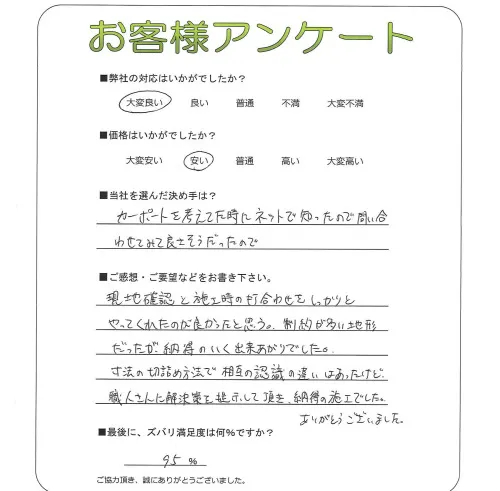 お客様アンケート
■弊社の対応はいかがでしたか?
大変良い 良い 普通 不満 大変不満
■価格はいかがでしたか?
大変安い 安い 普通 高い 大変高い
■当社を選んだ決め手は?
カーポートを考えてた時にネットで知ったので問い合
わせてみて良さそうだったので
■ご感想・ご要望などをお書き下さい。
現地確認と施工時の打合わせをしっかりと
やってくれたのが良かったと思う。制約が多い地形
だったが、納得のいく出来あがりでした。
寸法の切詰め方法で相互の認識の違いはあったけど、
職人さんに解決策を提示して頂き、納得の施工でした。
ありがとうございました。
■最後に、ズバリ満足度は何%ですか?
95 %
ご協力頂き、誠にありがとうございました。